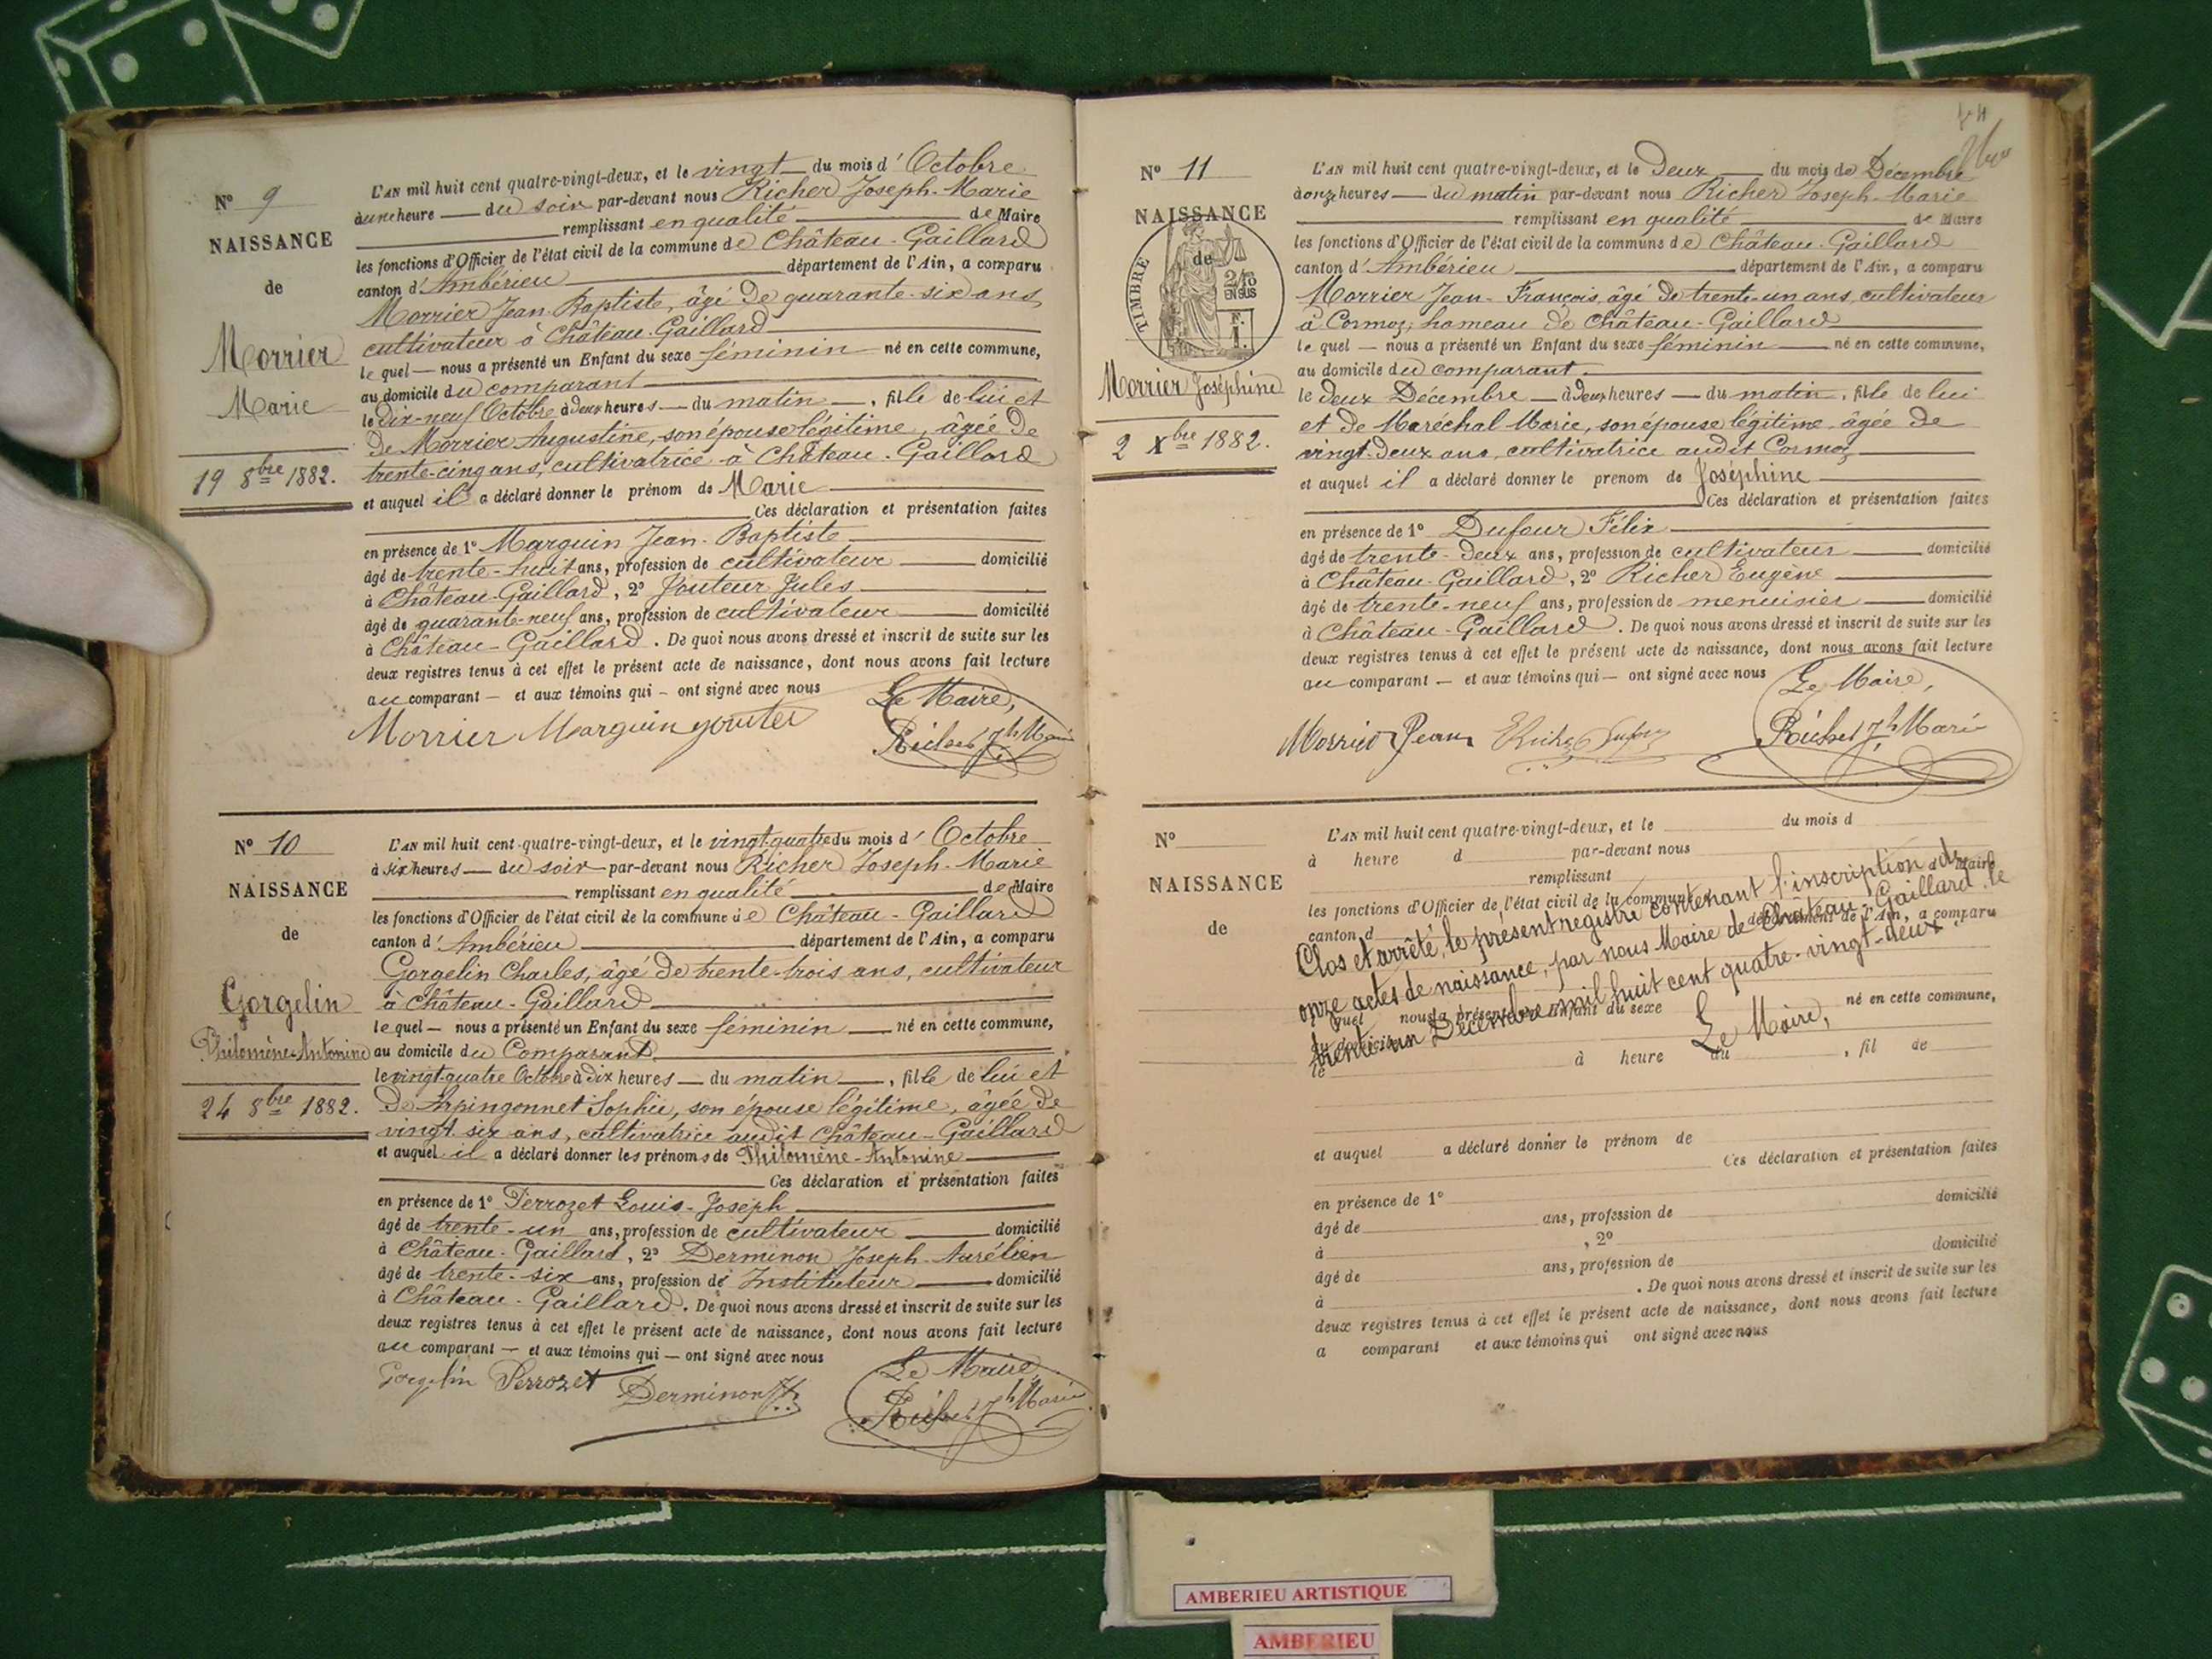 N° 9
NAISSANCE
de
Morrier
Marie
19 8bre 1882.
L'AN mil huit cent quatre-vingt-deux, et le vingt du mois d'Octobre
à une heure du soir par-devant nous Richer Joseph-Marie
remplissant en qualité de Maire
les fonctions d'Officier de l'état civil de la commune de Château-Gaillard
canton d'Ambérieu département de l'Ain, a comparu
Morrier Jean-Baptiste, âgé de quarante-six ans,
cultivateur à Château-Gaillard
lequel nous a présenté un Enfant du sexe féminin né en cette commune,
au domicile du comparant
le Dix-neuf Octobre à deux heures du matin, fille de lui et
de Morrier Augustine, son épouse légitime, âgée de
trente-cinq ans, cultivatrice à Château-Gaillard
et auquel il a déclaré donner le prénom de Marie
Ces déclaration et présentation faites
en présence de 1° Marguin Jean-Baptiste
âgé de trente-huit ans, profession de cultivateur domicilié
à Château-Gaillard, 2° Jouteur Jules
âgé de quarante-neuf ans, profession de cultivateur domicilié
à Château-Gaillard. De quoi nous avons dressé et inscrit de suite sur les
deux registres tenus à cet effet le présent acte de naissance, dont nous avons fait lecture
au comparant et aux témoins qui ont signé avec nous
Le Maire,
Morrier Marguin Jouteur Richer Jh Marie
N° 10
NAISSANCE
de
Gorgelin
Philomène-Antonine
24 8bre 1882.
L'AN mil huit cent quatre-vingt-deux, et le vingt-quatre du mois d'Octobre
à six heures du soir par-devant nous Richer Joseph-Marie
remplissant en qualité de Maire
les fonctions d'Officier de l'état civil de la commune de Château-Gaillard
canton d'Ambérieu département de l'Ain, a comparu
Gorgelin Charles, âgé de trente-trois ans, cultivateur
à Château-Gaillard
lequel nous a présenté un Enfant du sexe féminin né en cette commune,
au domicile du Comparant
le vingt-quatre Octobre à Dix heures du matin, fille de lui et
de Arpingonnet Sophie, son épouse légitime, âgée de
vingt-six ans, cultivatrice audit Château-Gaillard
et auquel il a déclaré donner les prénoms de Philomène-Antonine
Ces déclaration et présentation faites
en présence de 1° Perrozet Louis-Joseph
âgé de trente-un ans, profession de cultivateur domicilié
à Château-Gaillard, 2° Derminon Joseph-Aurélien
âgé de trente-six ans, profession de Instituteur domicilié
à Château-Gaillard. De quoi nous avons dressé et inscrit de suite sur les
deux registres tenus à cet effet le présent acte de naissance, dont nous avons fait lecture
au comparant et aux témoins qui ont signé avec nous
Le Maire,
Gorgelin Perrozet Derminon Richer Jh Marie
N° 11
NAISSANCE
de
TIMBRE
2/10
EN SUS
F.
1.
Morrier Joséphine
2 Xbre 1882.
L'AN mil huit cent quatre-vingt-deux, et le Deux du mois de Décembre
à onze heures du matin par-devant nous Richer Joseph-Marie
remplissant en qualité de Maire
les fonctions d'Officier de l'état civil de la commune de Château-Gaillard
canton d'Ambérieu département de l'Ain, a comparu
Morrier Jean-François, âgé de trente-un ans, cultivateur
à Cormoz, hameau de Château-Gaillard
lequel nous a présenté un Enfant du sexe féminin né en cette commune,
au domicile du comparant.
le deux Décembre à Deux heures du matin, fille de lui
et de Maréchal Marie, son épouse légitime, âgée de
vingt-deux ans, cultivatrice audit Cormoz
et auquel il a déclaré donner le prénom de Joséphine
Ces déclaration et présentation faites
en présence de 1° Dufour Félix
âgé de trente-deux ans, profession de cultivateur domicilié
à Château-Gaillard, 2° Richer Eugène
âgé de trente-neuf ans, profession de menuisier domicilié
à Château-Gaillard. De quoi nous avons dressé et inscrit de suite sur les
deux registres tenus à cet effet le présent acte de naissance, dont nous avons fait lecture
au comparant et aux témoins qui ont signé avec nous
Le Maire,
Morrier Jean E Richer Dufour Richer Jh Marie
N°
NAISSANCE
de
L'AN mil huit cent quatre-vingt-deux, et le du mois d
à heure d par-devant nous
remplissant d Maire
les fonctions d'Officier de l'état civil de la commune d
canton d département de l'Ain, a comparu
Clos et arrêté, le présent registre contenant l'inscription de
onze actes de naissance, par nous Maire de Château-Gaillard le
trente-un Décembre mil huit cent quatre-vingt-deux.
Le Maire,
quel nous a présenté un Enfant du sexe né en cette commune,
au domicile
le à heure du , fil de
et auquel a déclaré donner le prénom de
Ces déclaration et présentation faites
en présence de 1°
âgé de ans, profession de domicilié
à , 2°
âgé de ans, profession de domicilié
à . De quoi nous avons dressé et inscrit de suite sur les
deux registres tenus à cet effet le présent acte de naissance, dont nous avons fait lecture
a comparant et aux témoins qui ont signé avec nous
AMBERIEU ARTISTIQUE
AMBERIEU